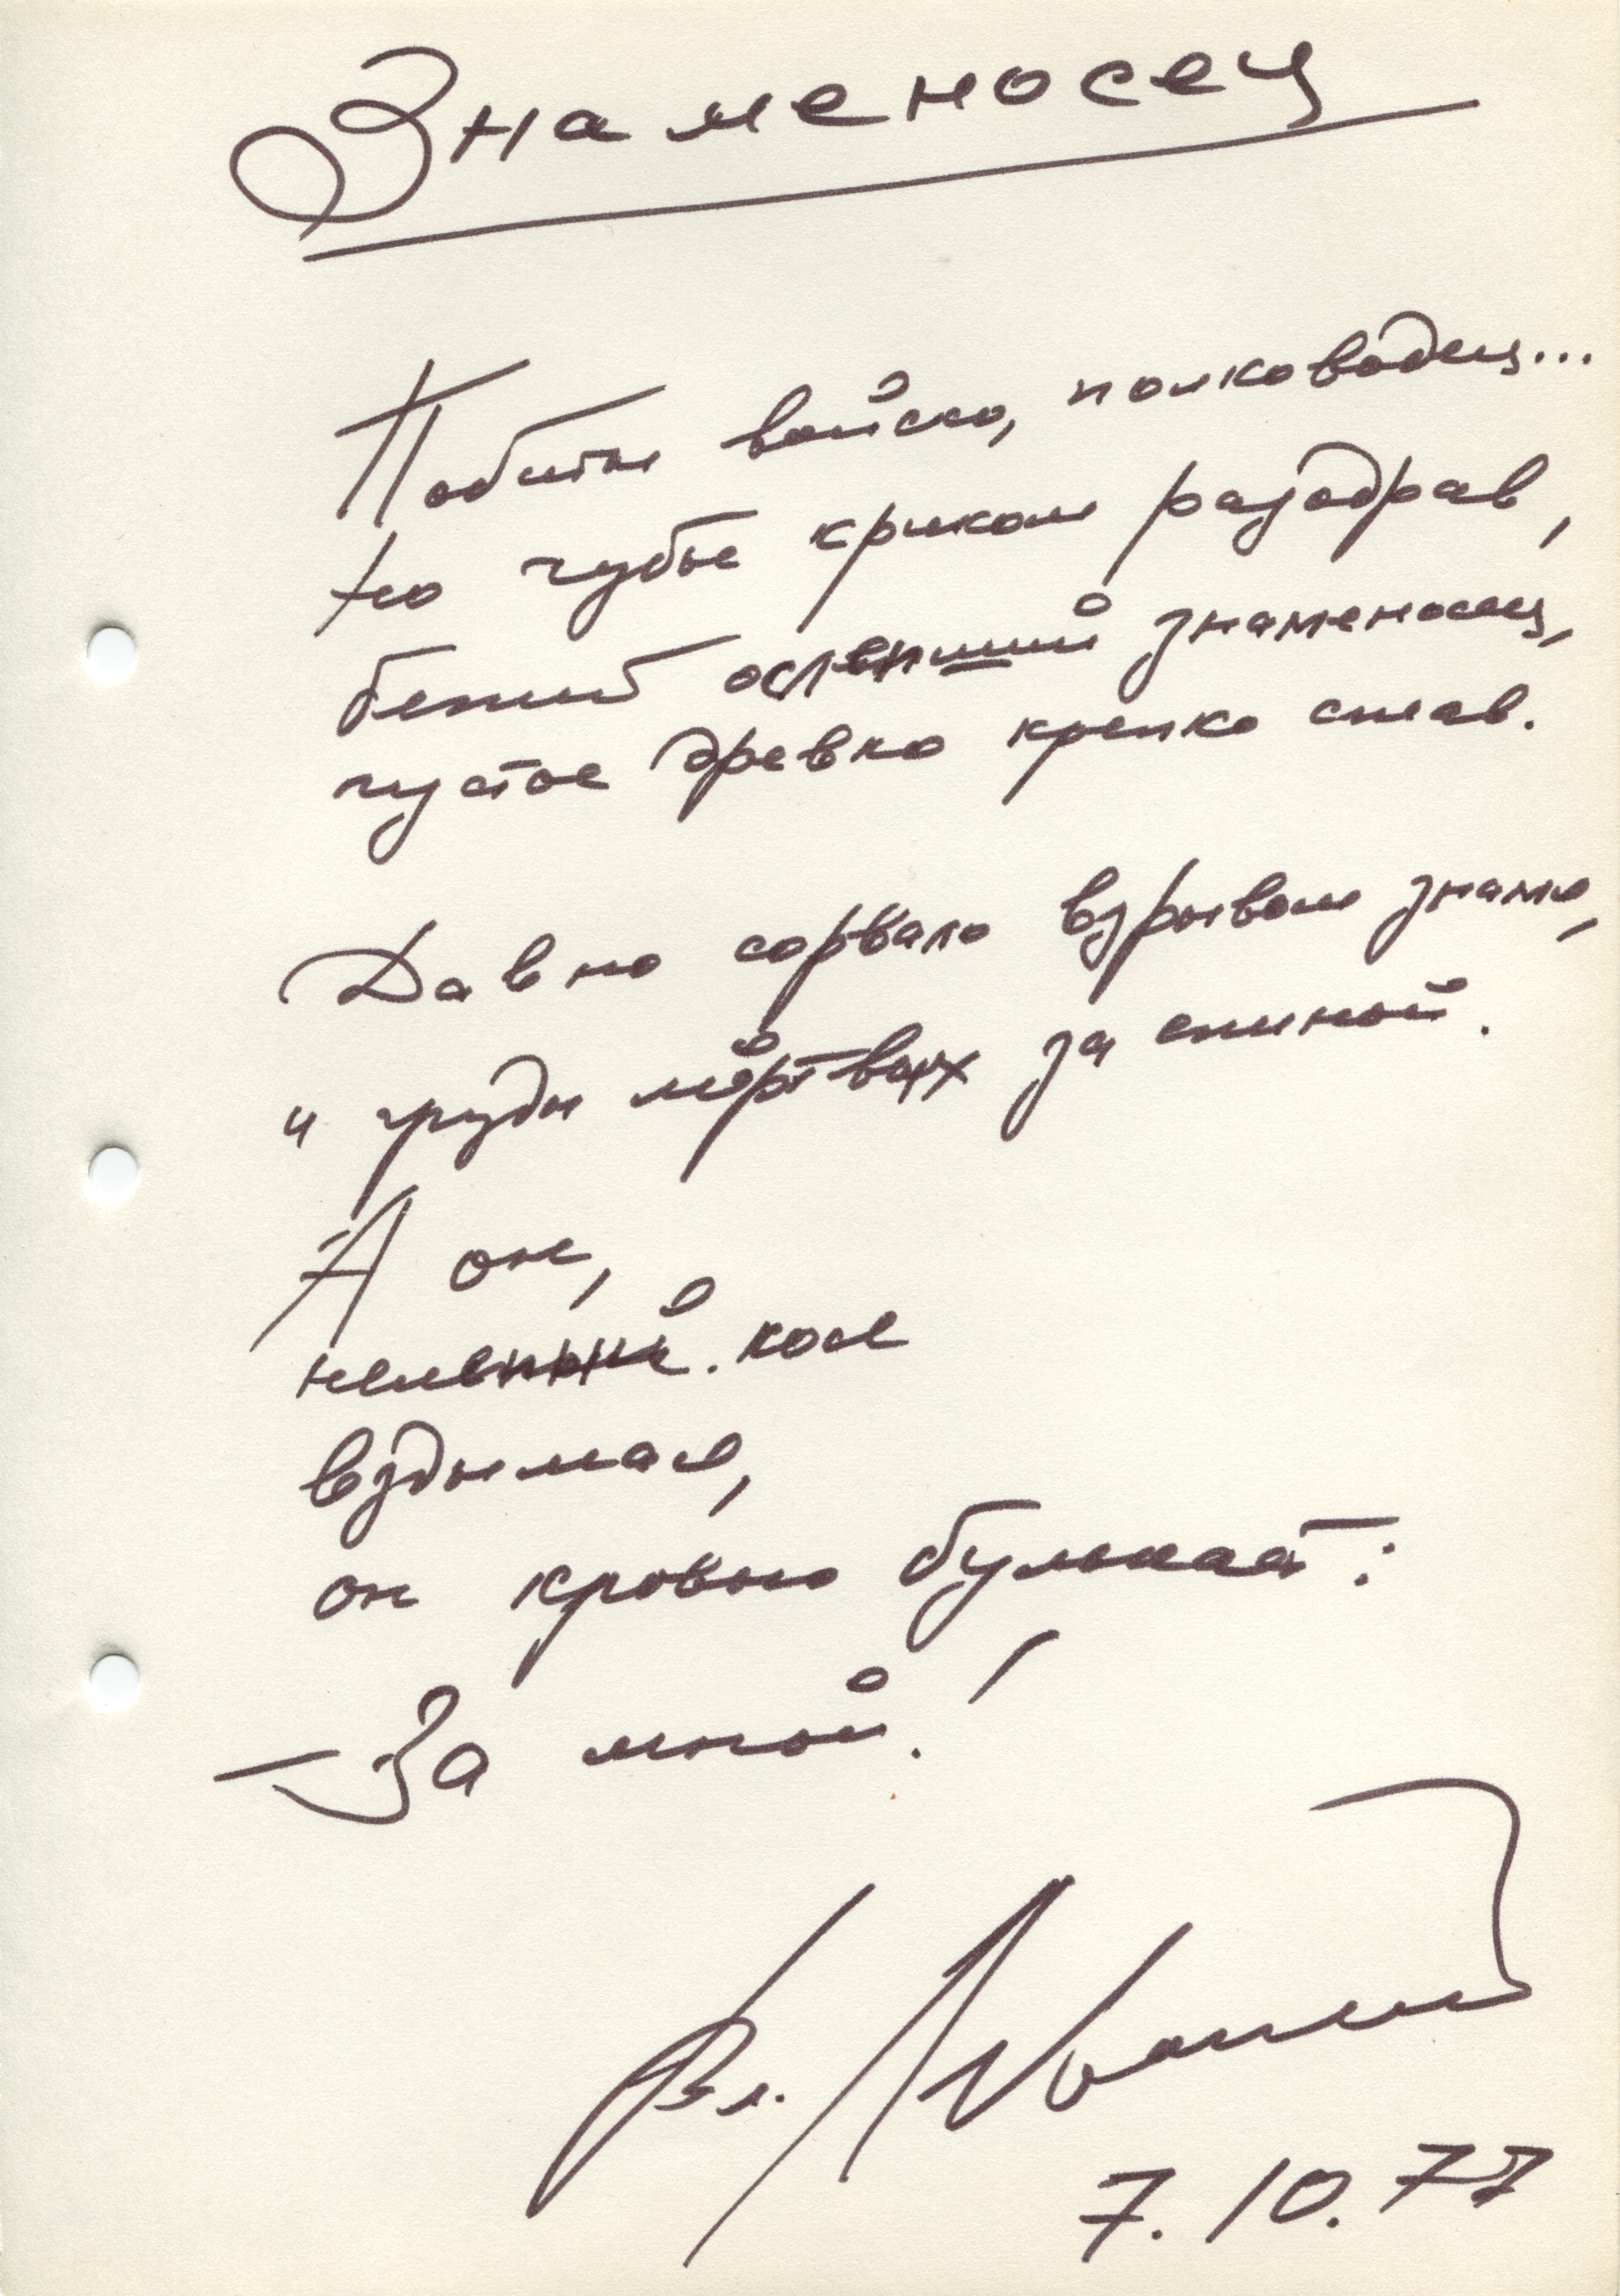 Знаменосец
Побиты войско, полководец...
Но губы криком разодрав,
бежит ослепший знаменосец,
пустое древко крепко сжав.
Давно сорвало взрывом знамя,
и груды мёртвых за спиной.
А он,
нелепый кол
вздымая,
он кровью булькает:
— За мной!
Вл.
7.10.77